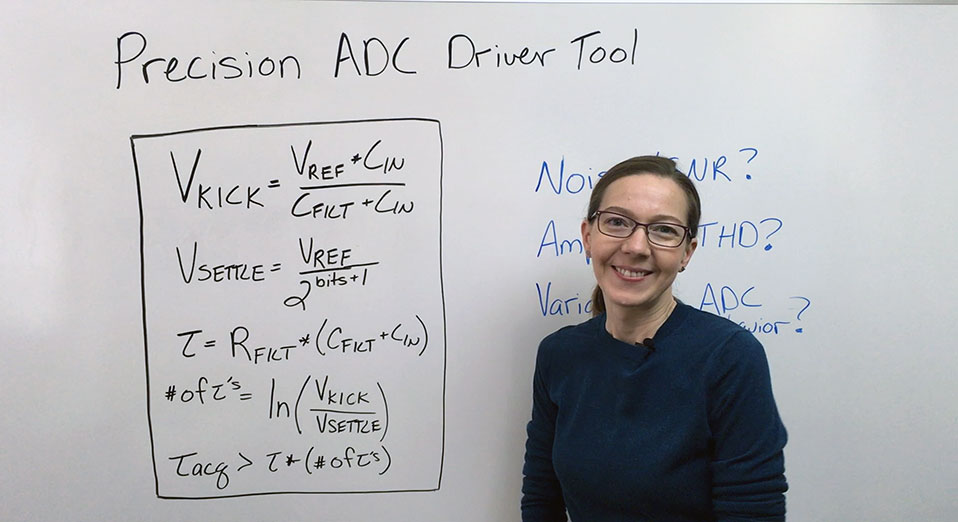 Precision ADC Driver Tool
V_KICK = (V_REF * C_IN) / (C_FILT + C_IN)
V_SETTLE = V_REF / 2^(bits+1)
τ = R_FILT * (C_FILT + C_IN)
# of τ's = ln(V_KICK / V_SETTLE)
τacq > τ * (# of τ's)
SNR?
THD?
ADC